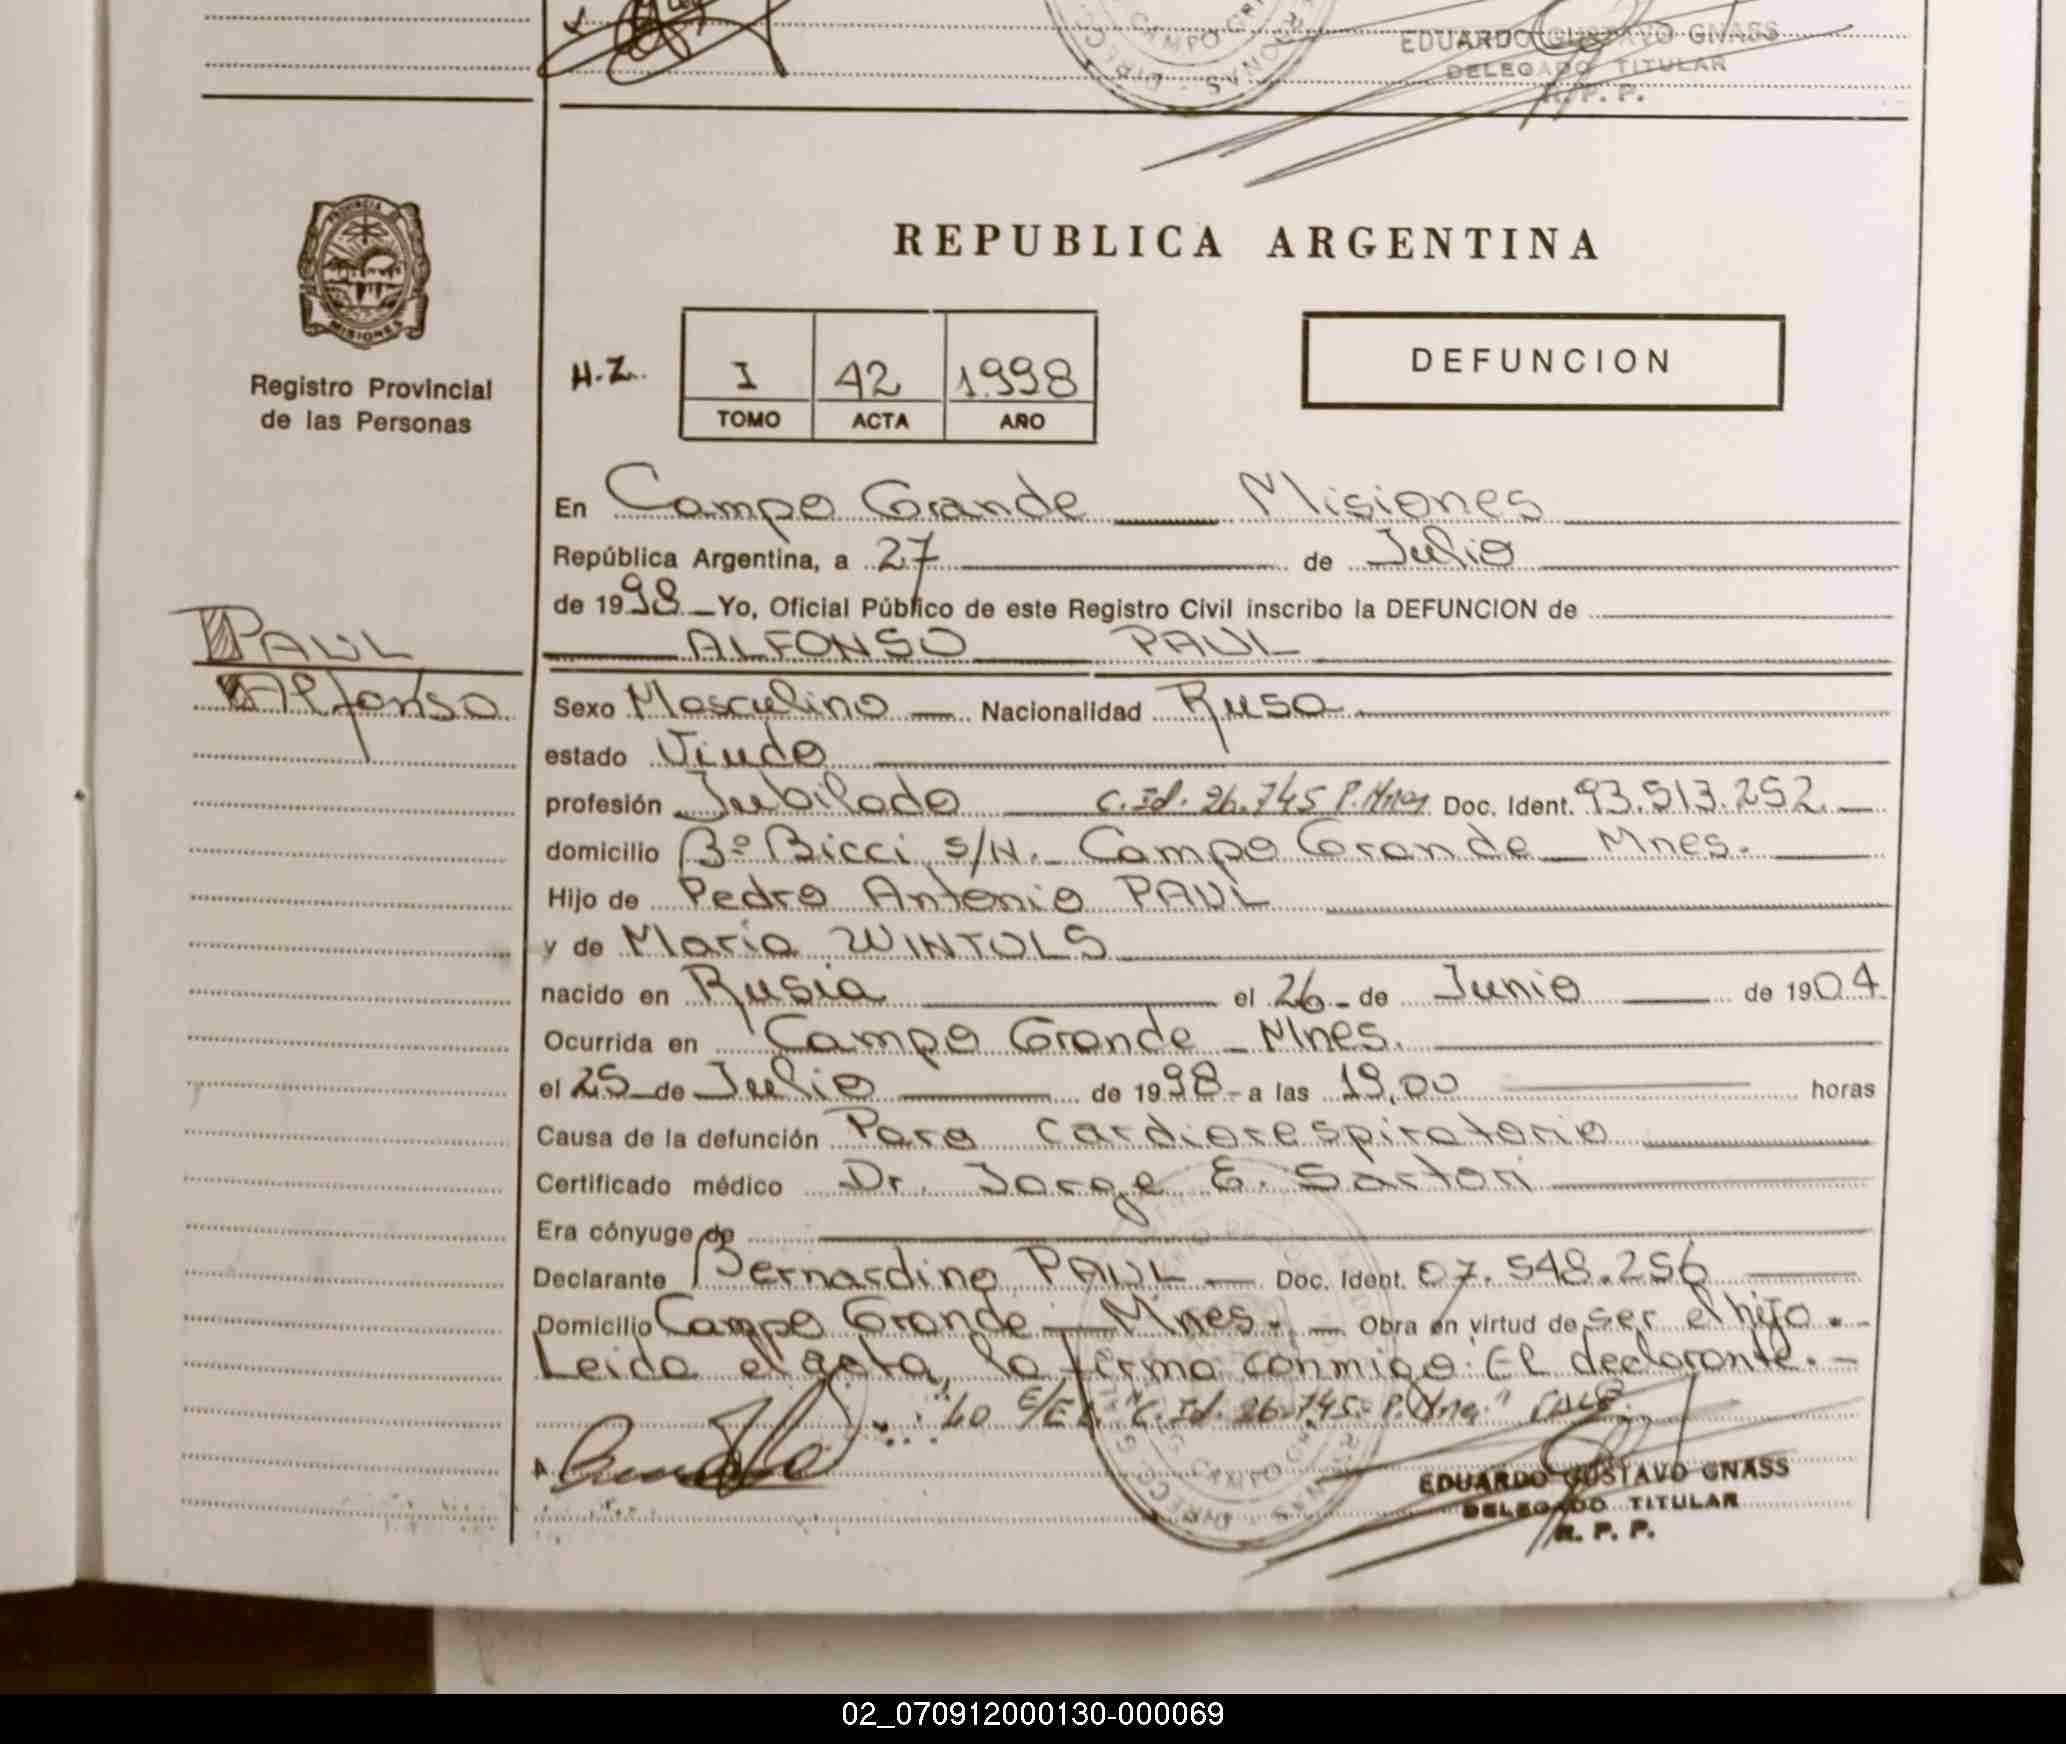 EDUARDO GUSTAVO GNASS
DELEGADO TITULAR
R. P. P.
PROVINCIA DE
MISIONES
Registro Provincial
de las Personas
REPUBLICA ARGENTINA
H.Z. I 42 1.998
TOMO ACTA AÑO
DEFUNCION
En Campo Grande Misiones
República Argentina, a 27 de Julio
de 1998 Yo, Oficial Público de este Registro Civil inscribo la DEFUNCION de
ALFONSO PAUL
PAUL
Alfonso
Sexo Masculino Nacionalidad Rusa
estado Viudo
profesión Jubilado C.Id. 26.745 P.Mnes Doc. Ident. 93.513.252
domicilio Bº Bicci s/N.- Campo Grande Mnes.
Hijo de Pedro Antonio PAUL
y de Maria WINTULS
nacido en Rusia el 26 de Junio de 1904
Ocurrida en Campo Grande Mnes.
el 25 de Julio de 1998 a las 19,00 horas
Causa de la defunción Paro cardiorespiratorio
Certificado médico Dr. Jorge E. Sartori
Era cónyuge de
Declarante Bernardino PAUL Doc. Ident. 07.548.256
Domicilio Campo Grande Mnes. Obra en virtud de ser el hijo.-
Leida el acta, la firma conmigo: El declarante.-
Lo E/EL "C.Id. 26.745- P.Mnes" VALE.
EDUARDO GUSTAVO GNASS
DELEGADO TITULAR
R. P. P.
02_070912000130-000069